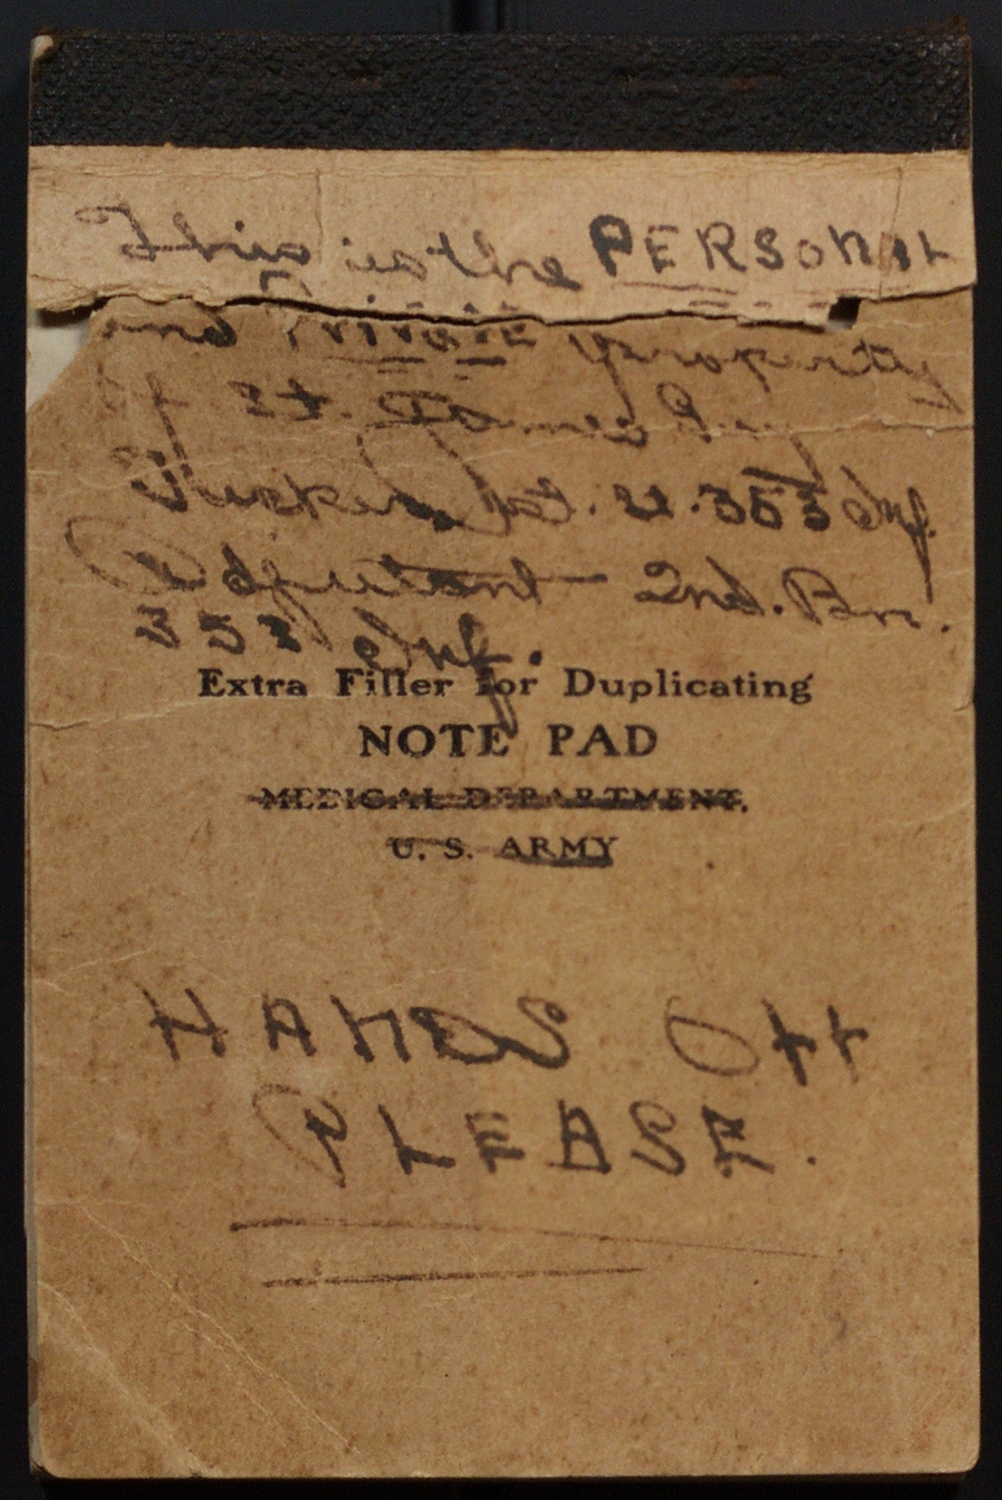 This is the PERSONAL
and Private property
of Lt. James P.
Adjutant 2nd. Bn.
353 Inf.
Extra Filler for Duplicating
NOTE PAD
MEDICAL DEPARTMENT,
U. S. ARMY
HANDS Off
PLEASE.